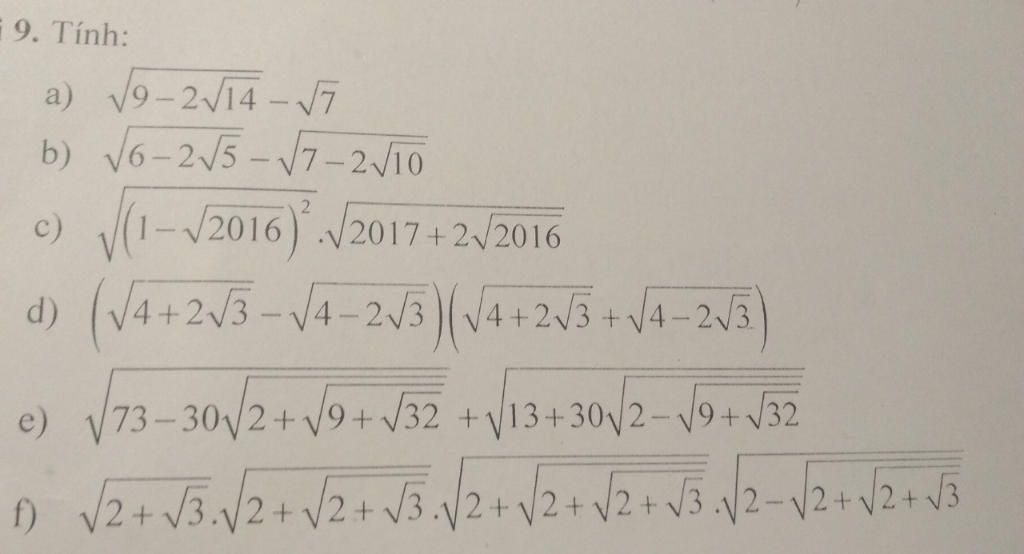 9. Tính:
a) √(9 − 2√14) − √7
b) √(6 − 2√5) − √(7 − 2√10)
c) √((1 − √2016)²) . √(2017 + 2√2016)
d) (√(4 + 2√3) − √(4 − 2√3))(√(4 + 2√3) + √(4 − 2√3))
e) √(73 − 30√(2 + √(9 + √32))) + √(13 + 30√(2 − √(9 + √32)))
f) √(2 + √3) . √(2 + √(2 + √3)) . √(2 + √(2 + √(2 + √3))) . √(2 − √(2 + √(2 + √3)))